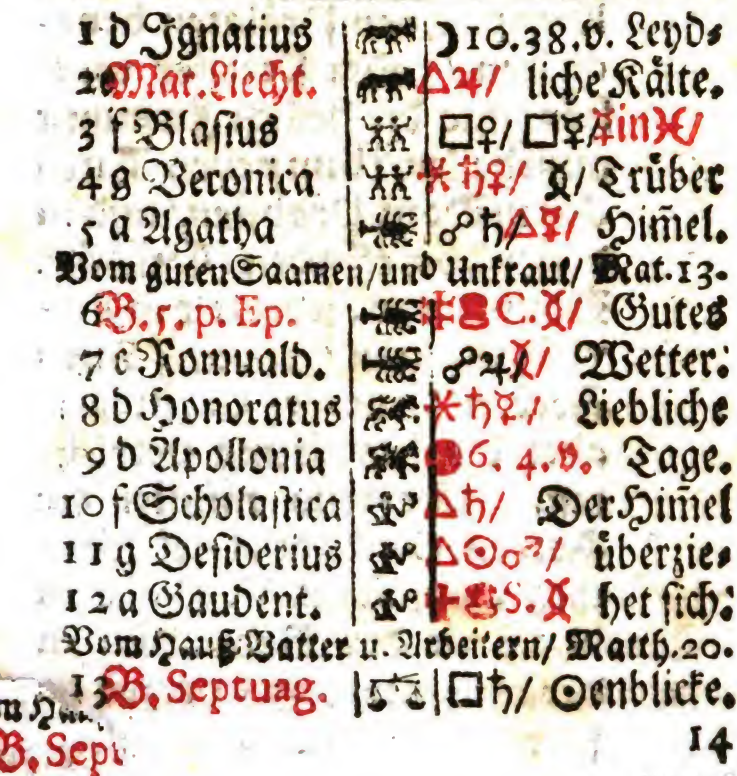 1 d Ignatius ☽10.38.v. Leyd⸗
2 e Mar. Liecht. △♃/ liche Kälte.
3 f Blasius □♀/ □☿/ ☿in♓/
4 g Veronica ⚹♄♀/ Trüber
5 a Agatha ☍♄/△☿/ Him̃el.
Vom guten Saamen/und Unkraut/ Mat.13.
6 B. 5. p. Ep. C. Gutes
7 c Romuald. ☍♃ Wetter:
8 d Honoratus ⚹♄☿/ Liebliche
9 d Apollonia 6. 4. v. Tage.
10 f Scholastica △♄/ Der Him̃el
11 g Desiderius △☉♂/ überzie⸗
12 a Gaudent. S. het sich:
Vom Hauß-Vatter u. Arbeitern/ Matth.20.
13 B. Septuag. ♎ □♄/ ☉enblicke.
14
B. Sept